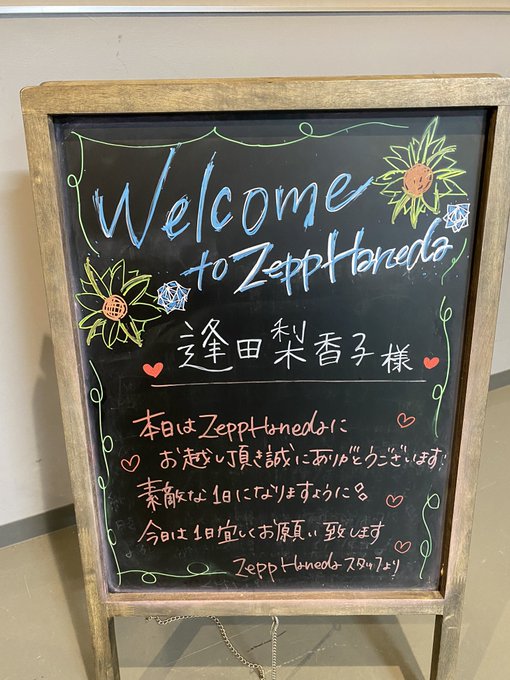 Welcome
to Zepp Haneda
逢田梨香子様
本日はZepp Hanedaに
お越し頂き誠にありがとうございます!
素敵な1日になりますように
今日は1日宜しくお願い致します
Zepp Haneda スタッフより